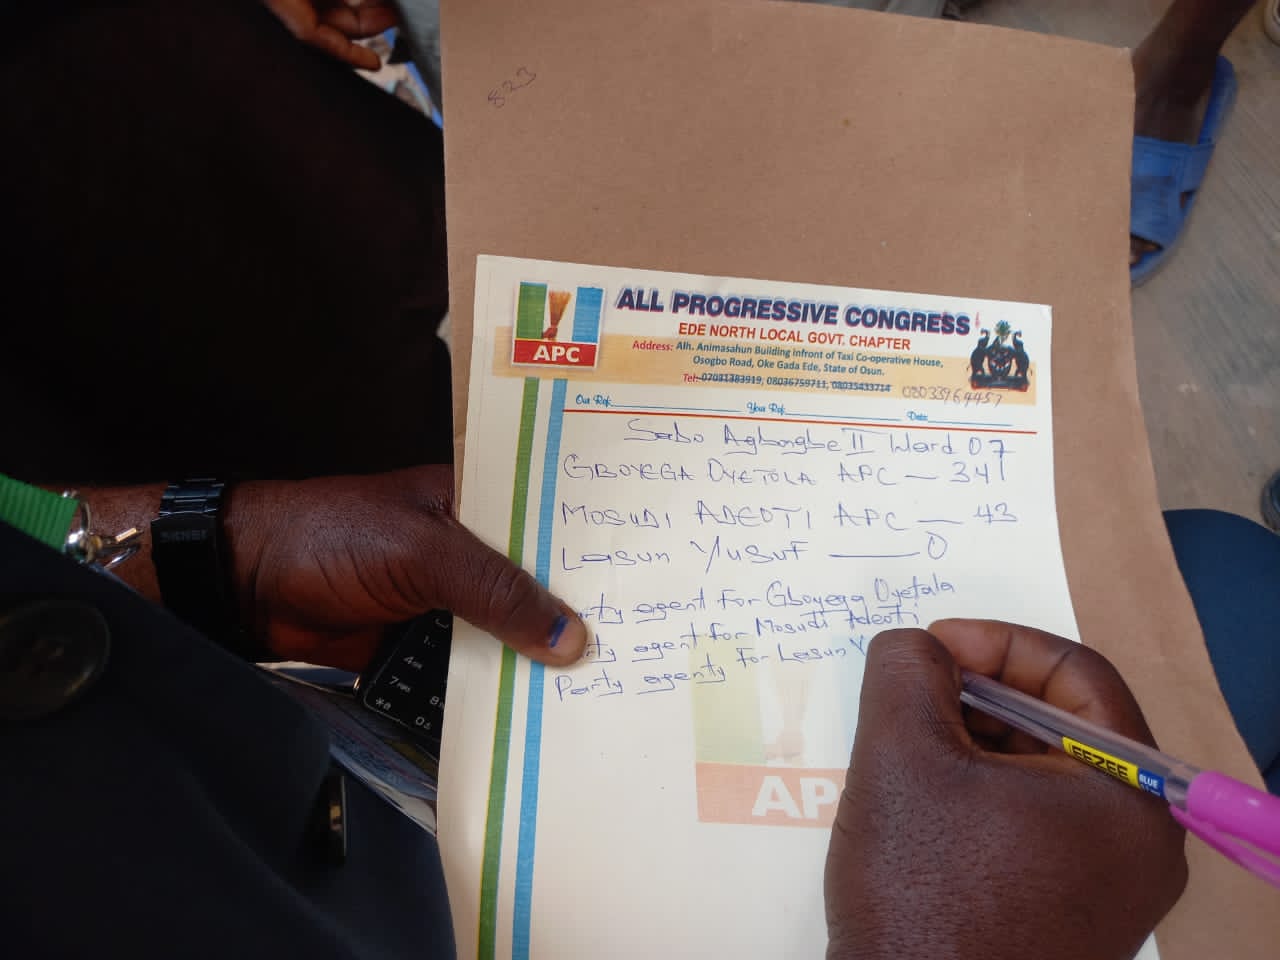 823
ALL PROGRESSIVE CONGRESS
EDE NORTH LOCAL GOVT. CHAPTER
Address: Alh. Animasahun Building infront of Taxi Co-operative House,
Osogbo Road, Oke Gada Ede, State of Osun.
Tel: 07031383919, 08036759711, 08035433714 08033964457
APC
Our Ref: Your Ref: Date:
Sabo Agbongbe II Ward 07
GBOYEGA OYETOLA APC — 341
MOSUDI ADEOTI APC — 43
Lasun YUSUF — 0
Party agent For Gboyega Oyetola
Party agent for Mosudi Adeoti
Party agenty For Lasun Y
AP
EEZEE
BLUE
4
7
8
*
0